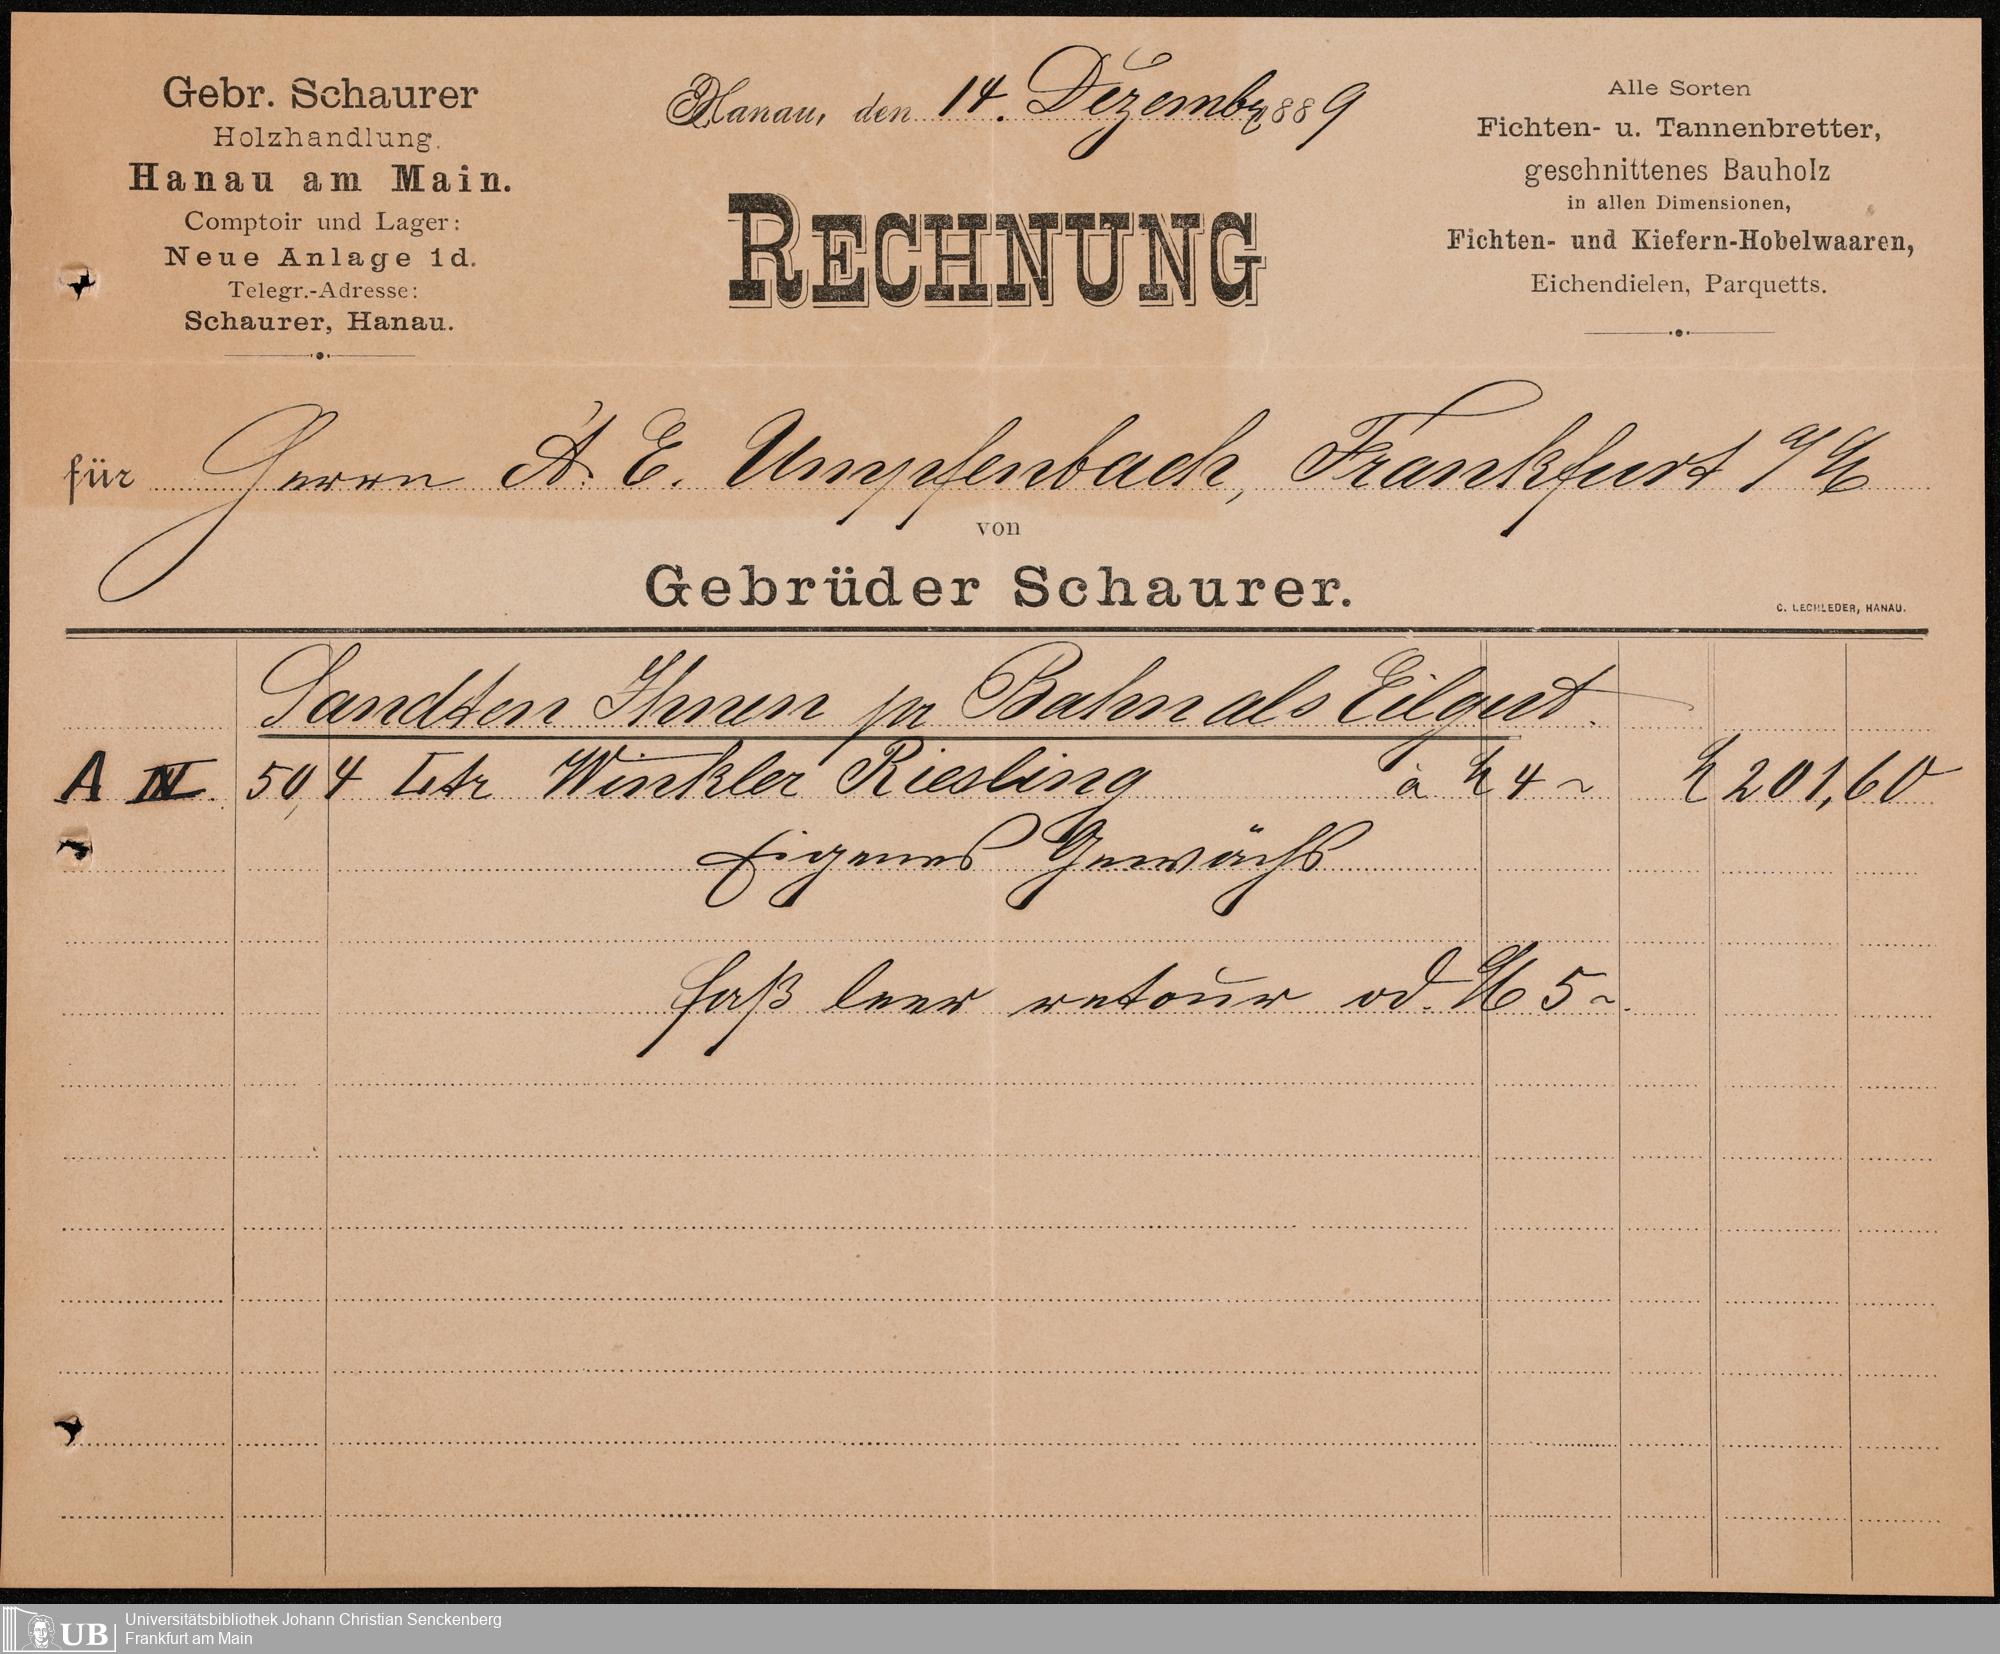 Gebr. Schaurer
Holzhandlung.
Hanau am Main.
Comptoir und Lager:
Neue Anlage 1d.
Telegr.-Adresse:
Schaurer, Hanau.
Hanau, den 14. Dezembr 1889
RECHNUNG
Alle Sorten
Fichten- u. Tannenbretter,
geschnittenes Bauholz
in allen Dimensionen,
Fichten- und Kiefern-Hobelwaaren,
Eichendielen, Parquetts.
für Herrn A. E. Umpfenbach, Frankfurt a/M
von
Gebrüder Schaurer.
C. LECHLEDER, HANAU.
Sandten Ihnen pr Bahn als Eilgut.
A IV 50,4 Ltr Winkler Riesling à ℳ 4 ~ ℳ 201,60
Eigenes Gewächs
Faß leer retour od. ℳ 5 ~.
UB
Universitätsbibliothek Johann Christian Senckenberg
Frankfurt am Main